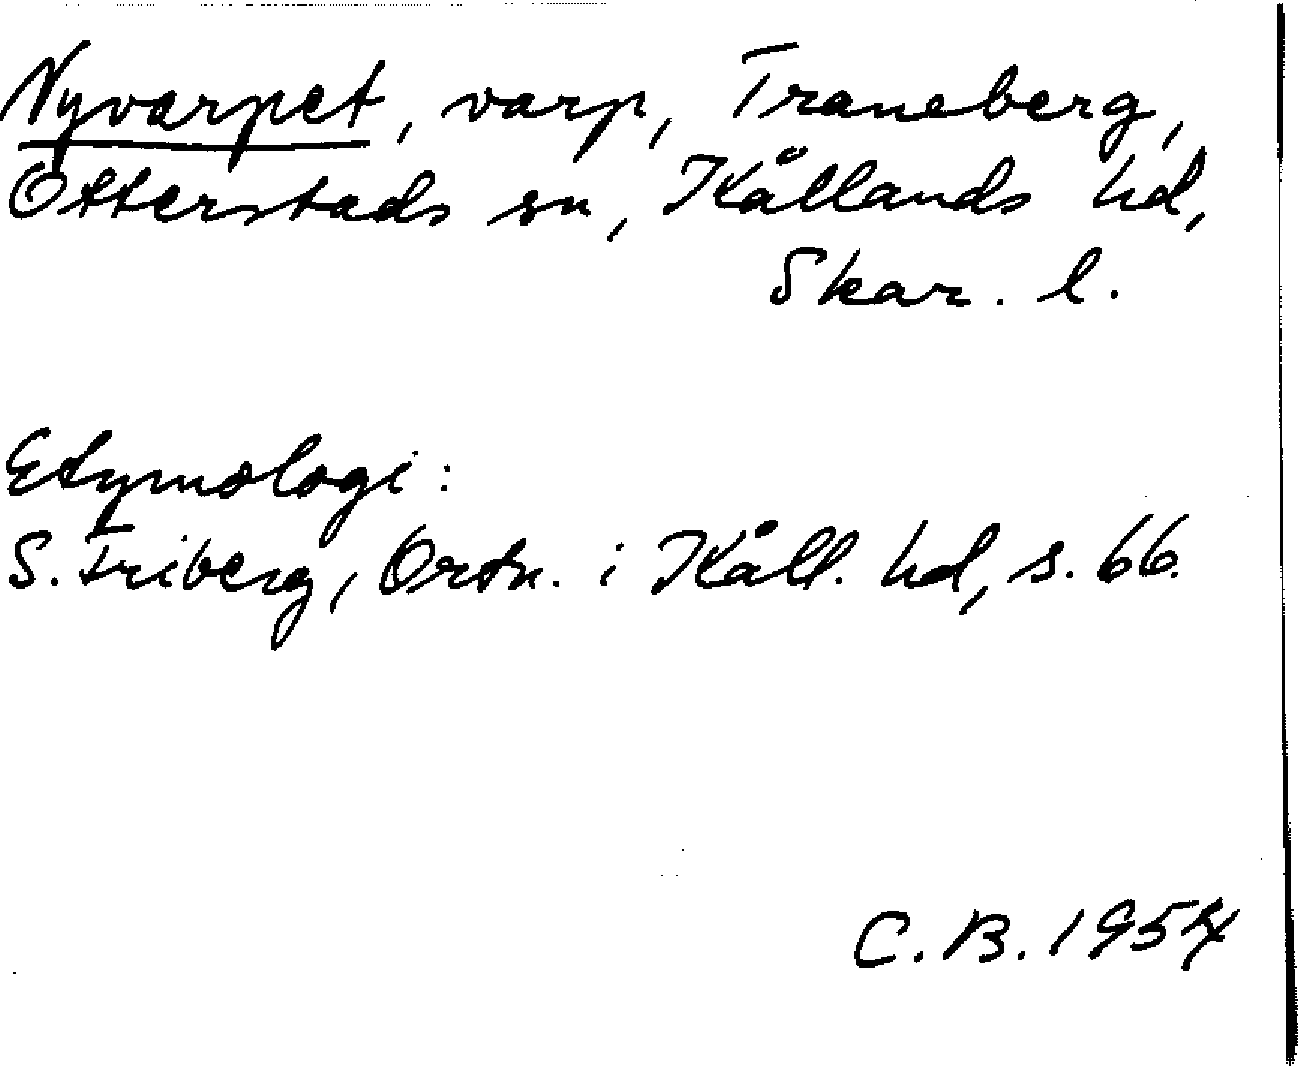 Nyvarpet, varp, Traneberg,
Otterstads sn, Kållands hd,
Skar. l.
Etymologi:
S. Friberg, Ortn. i Kåll. hd, s. 66.
C. B. 1954